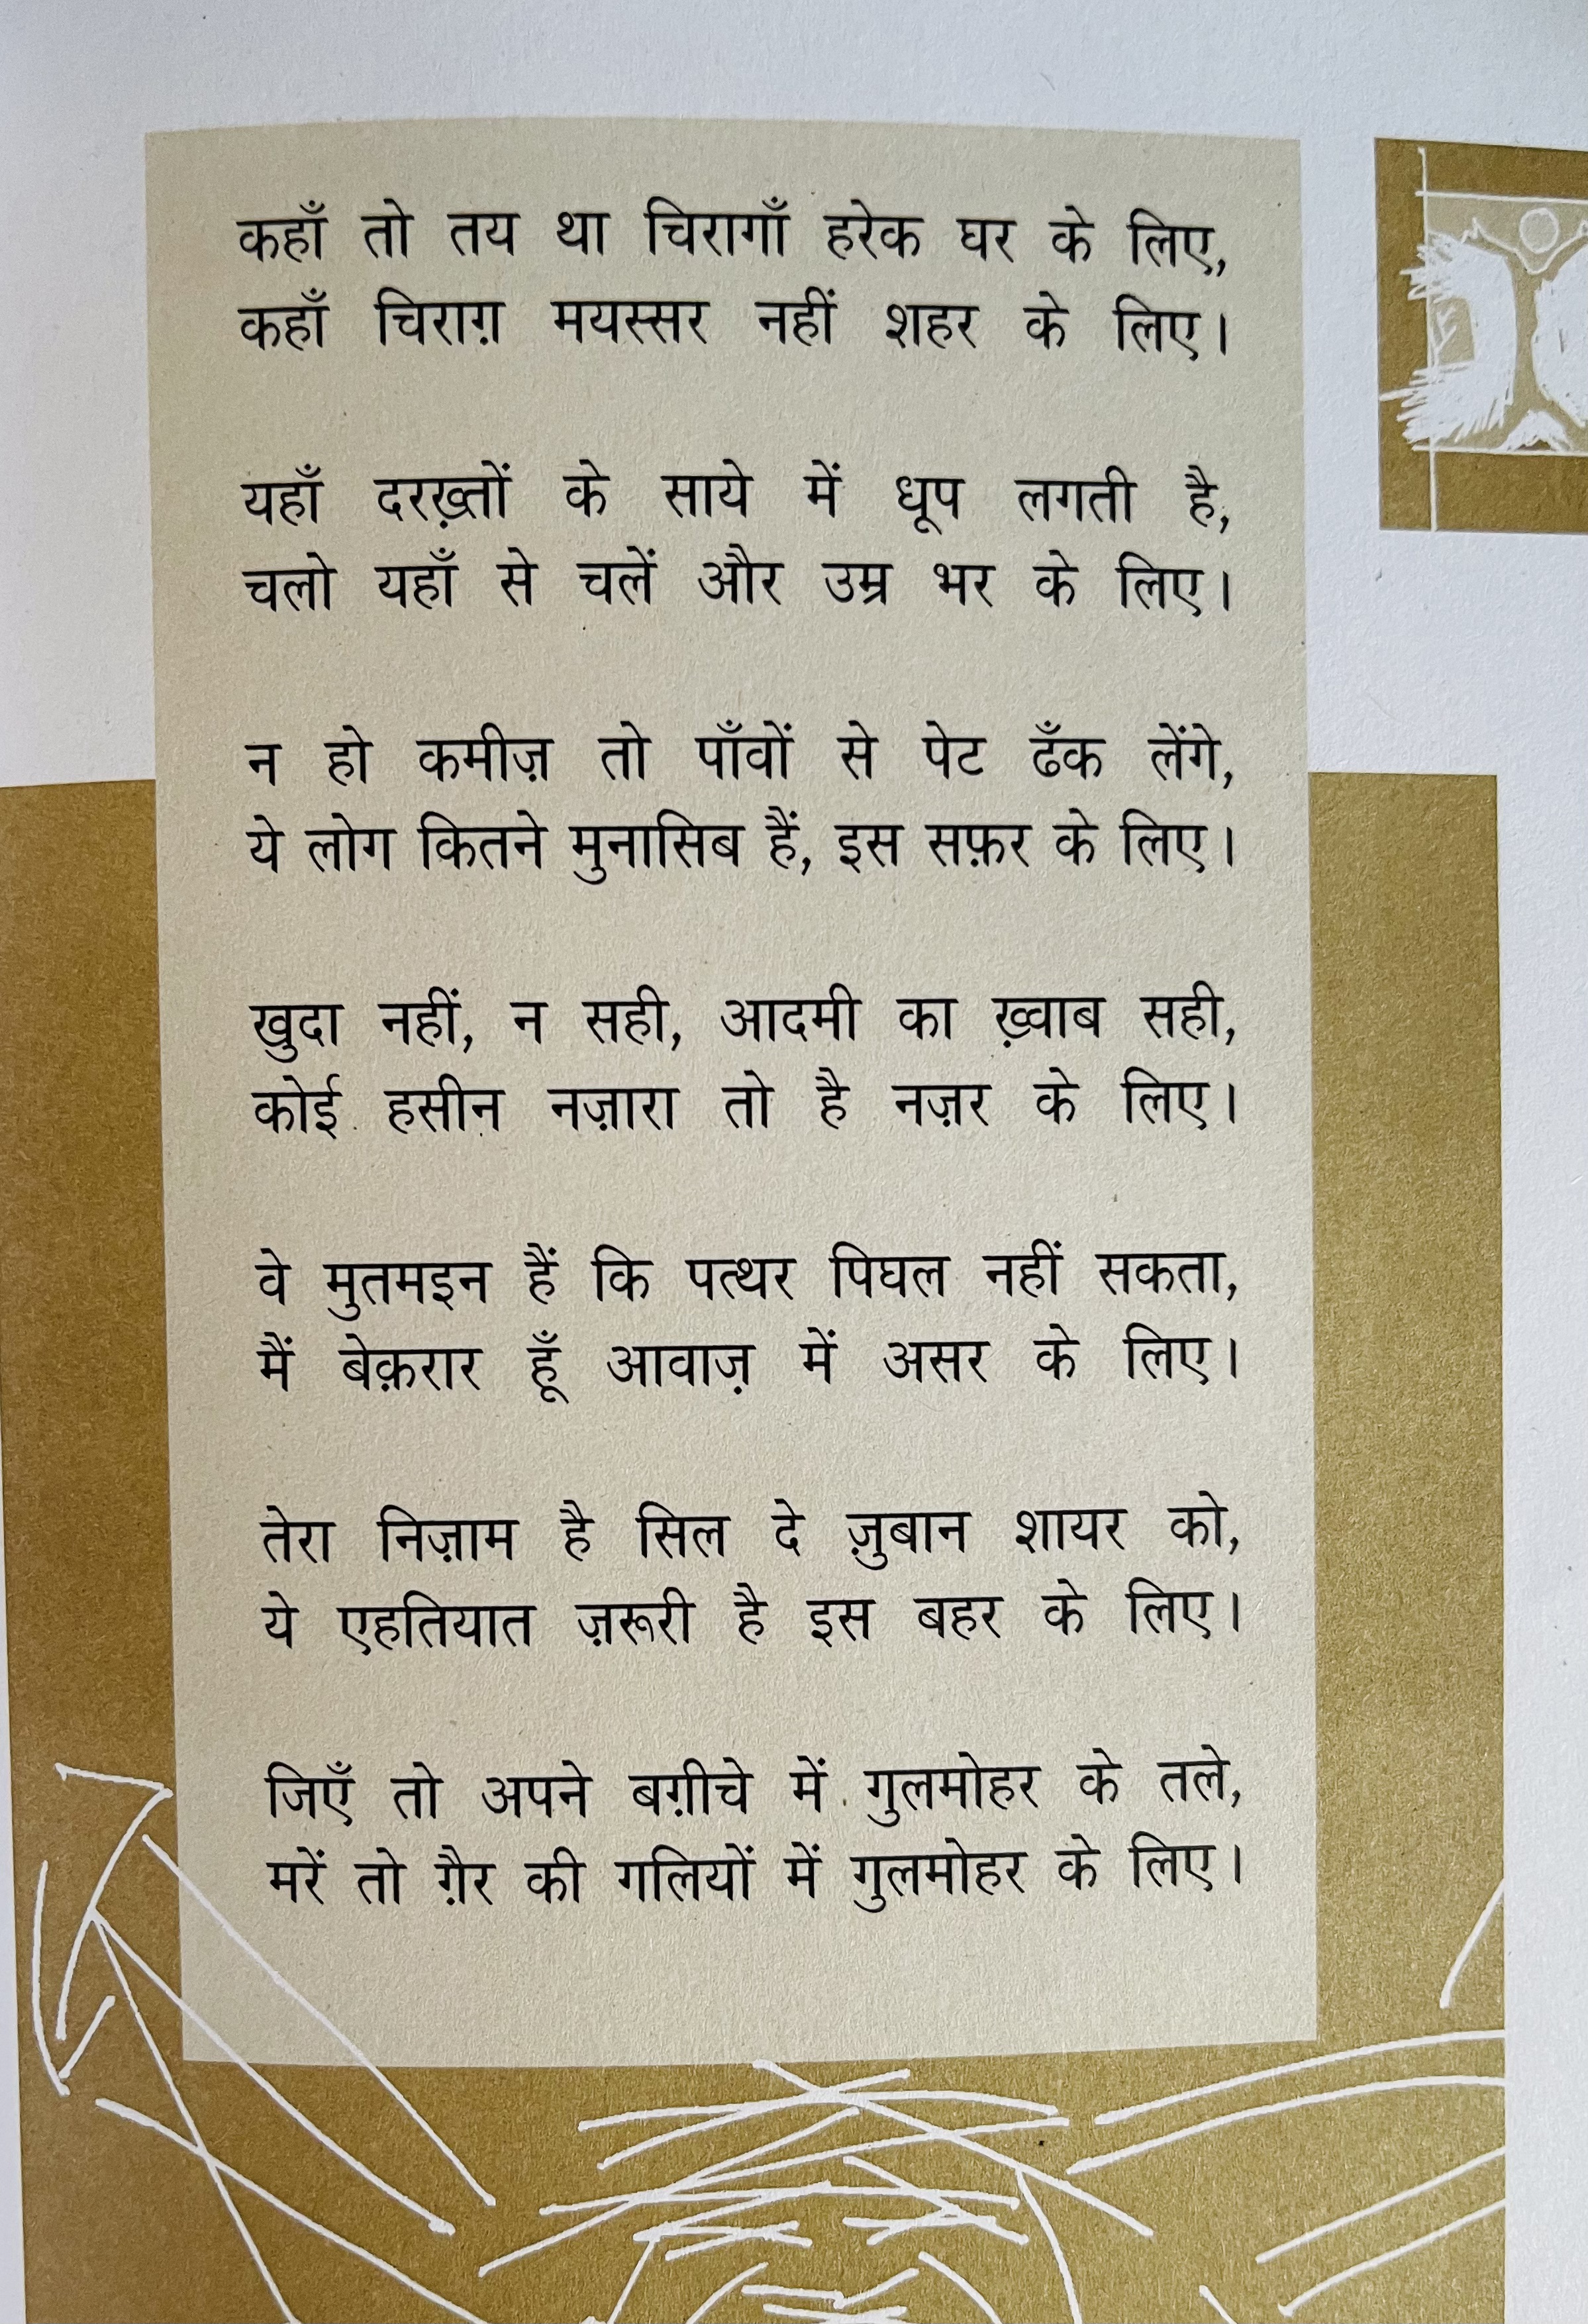 कहाँ तो तय था चिरागाँ हरेक घर के लिए,
कहाँ चिराग़ मयस्सर नहीं शहर के लिए।
यहाँ दरख़्तों के साये में धूप लगती है,
चलो यहाँ से चलें और उम्र भर के लिए।
न हो कमीज़ तो पाँवों से पेट ढँक लेंगे,
ये लोग कितने मुनासिब हैं, इस सफ़र के लिए।
खुदा नहीं, न सही, आदमी का ख़्वाब सही,
कोई हसीन नज़ारा तो है नज़र के लिए।
वे मुतमइन हैं कि पत्थर पिघल नहीं सकता,
मैं बेक़रार हूँ आवाज़ में असर के लिए।
तेरा निज़ाम है सिल दे ज़ुबान शायर को,
ये एहतियात ज़रूरी है इस बहर के लिए।
जिएँ तो अपने बग़ीचे में गुलमोहर के तले,
मरें तो ग़ैर की गलियों में गुलमोहर के लिए।